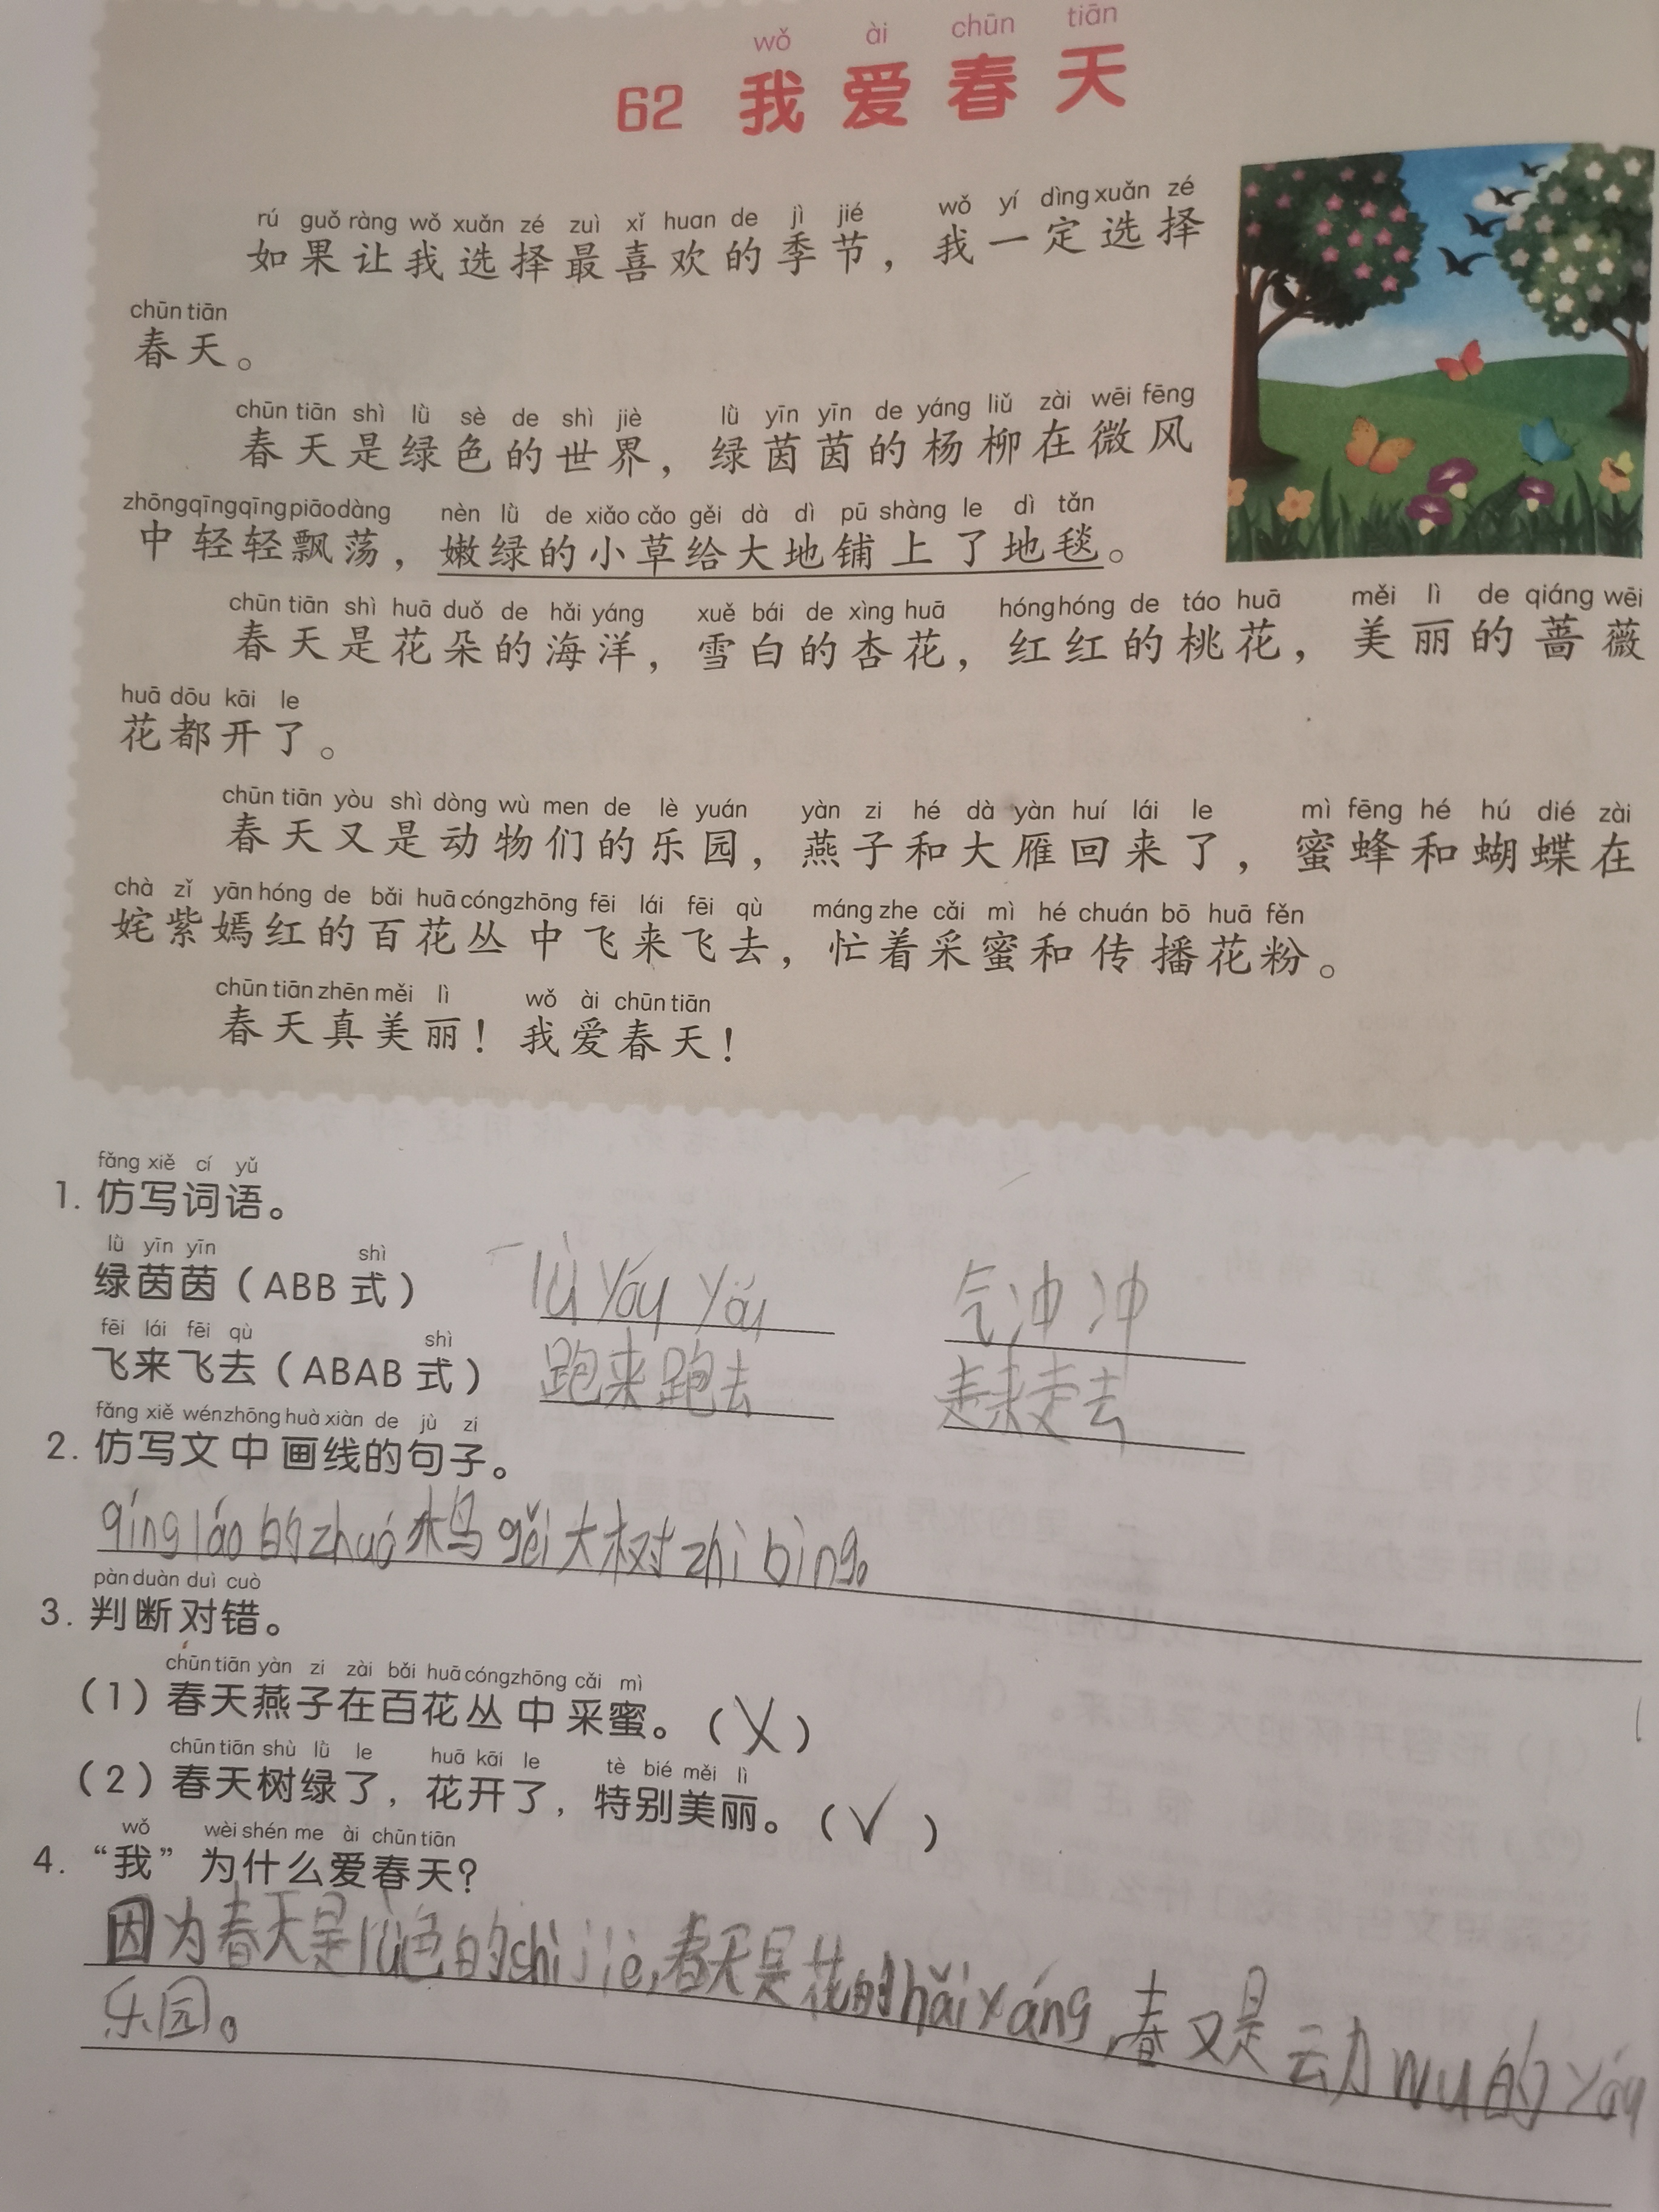 wǒ ài chūn tiān
62 我爱春天
rú guǒ ràng wǒ xuǎn zé zuì xǐ huan de jì jié wǒ yí dìng xuǎn zé
如果让我选择最喜欢的季节，我一定选择
chūn tiān
春天。
chūn tiān shì lǜ sè de shì jiè lǜ yīn yīn de yáng liǔ zài wēi fēng
春天是绿色的世界，绿茵茵的杨柳在微风
zhōng qīng qīng piāo dàng nèn lǜ de xiǎo cǎo gěi dà dì pū shàng le dì tǎn
中轻轻飘荡，嫩绿的小草给大地铺上了地毯。
chūn tiān shì huā duǒ de hǎi yáng xuě bái de xìng huā hóng hóng de táo huā měi lì de qiáng wēi
春天是花朵的海洋，雪白的杏花，红红的桃花，美丽的蔷薇
huā dōu kāi le
花都开了。
chūn tiān yòu shì dòng wù men de lè yuán yàn zi hé dà yàn huí lái le mì fēng hé hú dié zài
春天又是动物们的乐园，燕子和大雁回来了，蜜蜂和蝴蝶在
chà zǐ yān hóng de bǎi huā cóng zhōng fēi lái fēi qù máng zhe cǎi mì hé chuán bō huā fěn
姹紫嫣红的百花丛中飞来飞去，忙着采蜜和传播花粉。
chūn tiān zhēn měi lì wǒ ài chūn tiān
春天真美丽！我爱春天！
fǎng xiě cí yǔ
1. 仿写词语。
lǜ yīn yīn shì
绿茵茵（ABB 式） lǜ yóu yóu 气冲冲
fēi lái fēi qù shì
飞来飞去（ABAB 式） 跑来跑去 走来走去
fǎng xiě wén zhōng huà xiàn de jù zi
2. 仿写文中画线的句子。
qíng láo 的 zhuó 木鸟 gěi 大树 zhì bìng。
pàn duàn duì cuò
3. 判断对错。
chūn tiān yàn zi zài bǎi huā cóng zhōng cǎi mì
（1）春天燕子在百花丛中采蜜。（X）
chūn tiān shù lǜ le huā kāi le tè bié měi lì
（2）春天树绿了，花开了，特别美丽。（√）
wǒ wèi shén me ài chūn tiān
4. “我”为什么爱春天？
因为春天是lǜ色的shì jiè,春天是花的hǎi yáng,春又是动wu的
乐园。